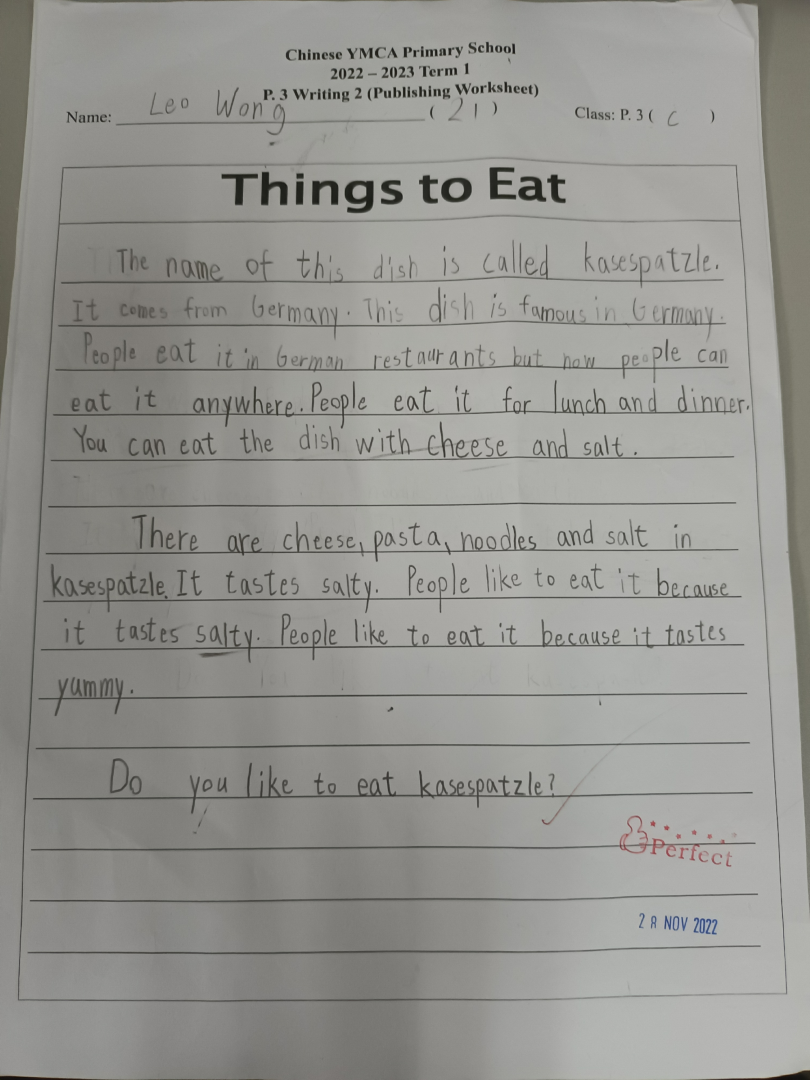 Chinese YMCA Primary School
2022 – 2023 Term 1
P. 3 Writing 2 (Publishing Worksheet)
Name: Leo Wong ( 21 ) Class: P. 3 ( C )
Things to Eat
The name of this dish is called kasespatzle.
It comes from Germany. This dish is famous in Germany.
People eat it in German restaurants but now people can
eat it anywhere. People eat it for lunch and dinner.
You can eat the dish with cheese and salt.
There are cheese, pasta, noodles and salt in
kasespatzle. It tastes salty. People like to eat it because
it tastes salty. People like to eat it because it tastes
yummy.
Do you like to eat kasespatzle?
Perfect
28 NOV 2022